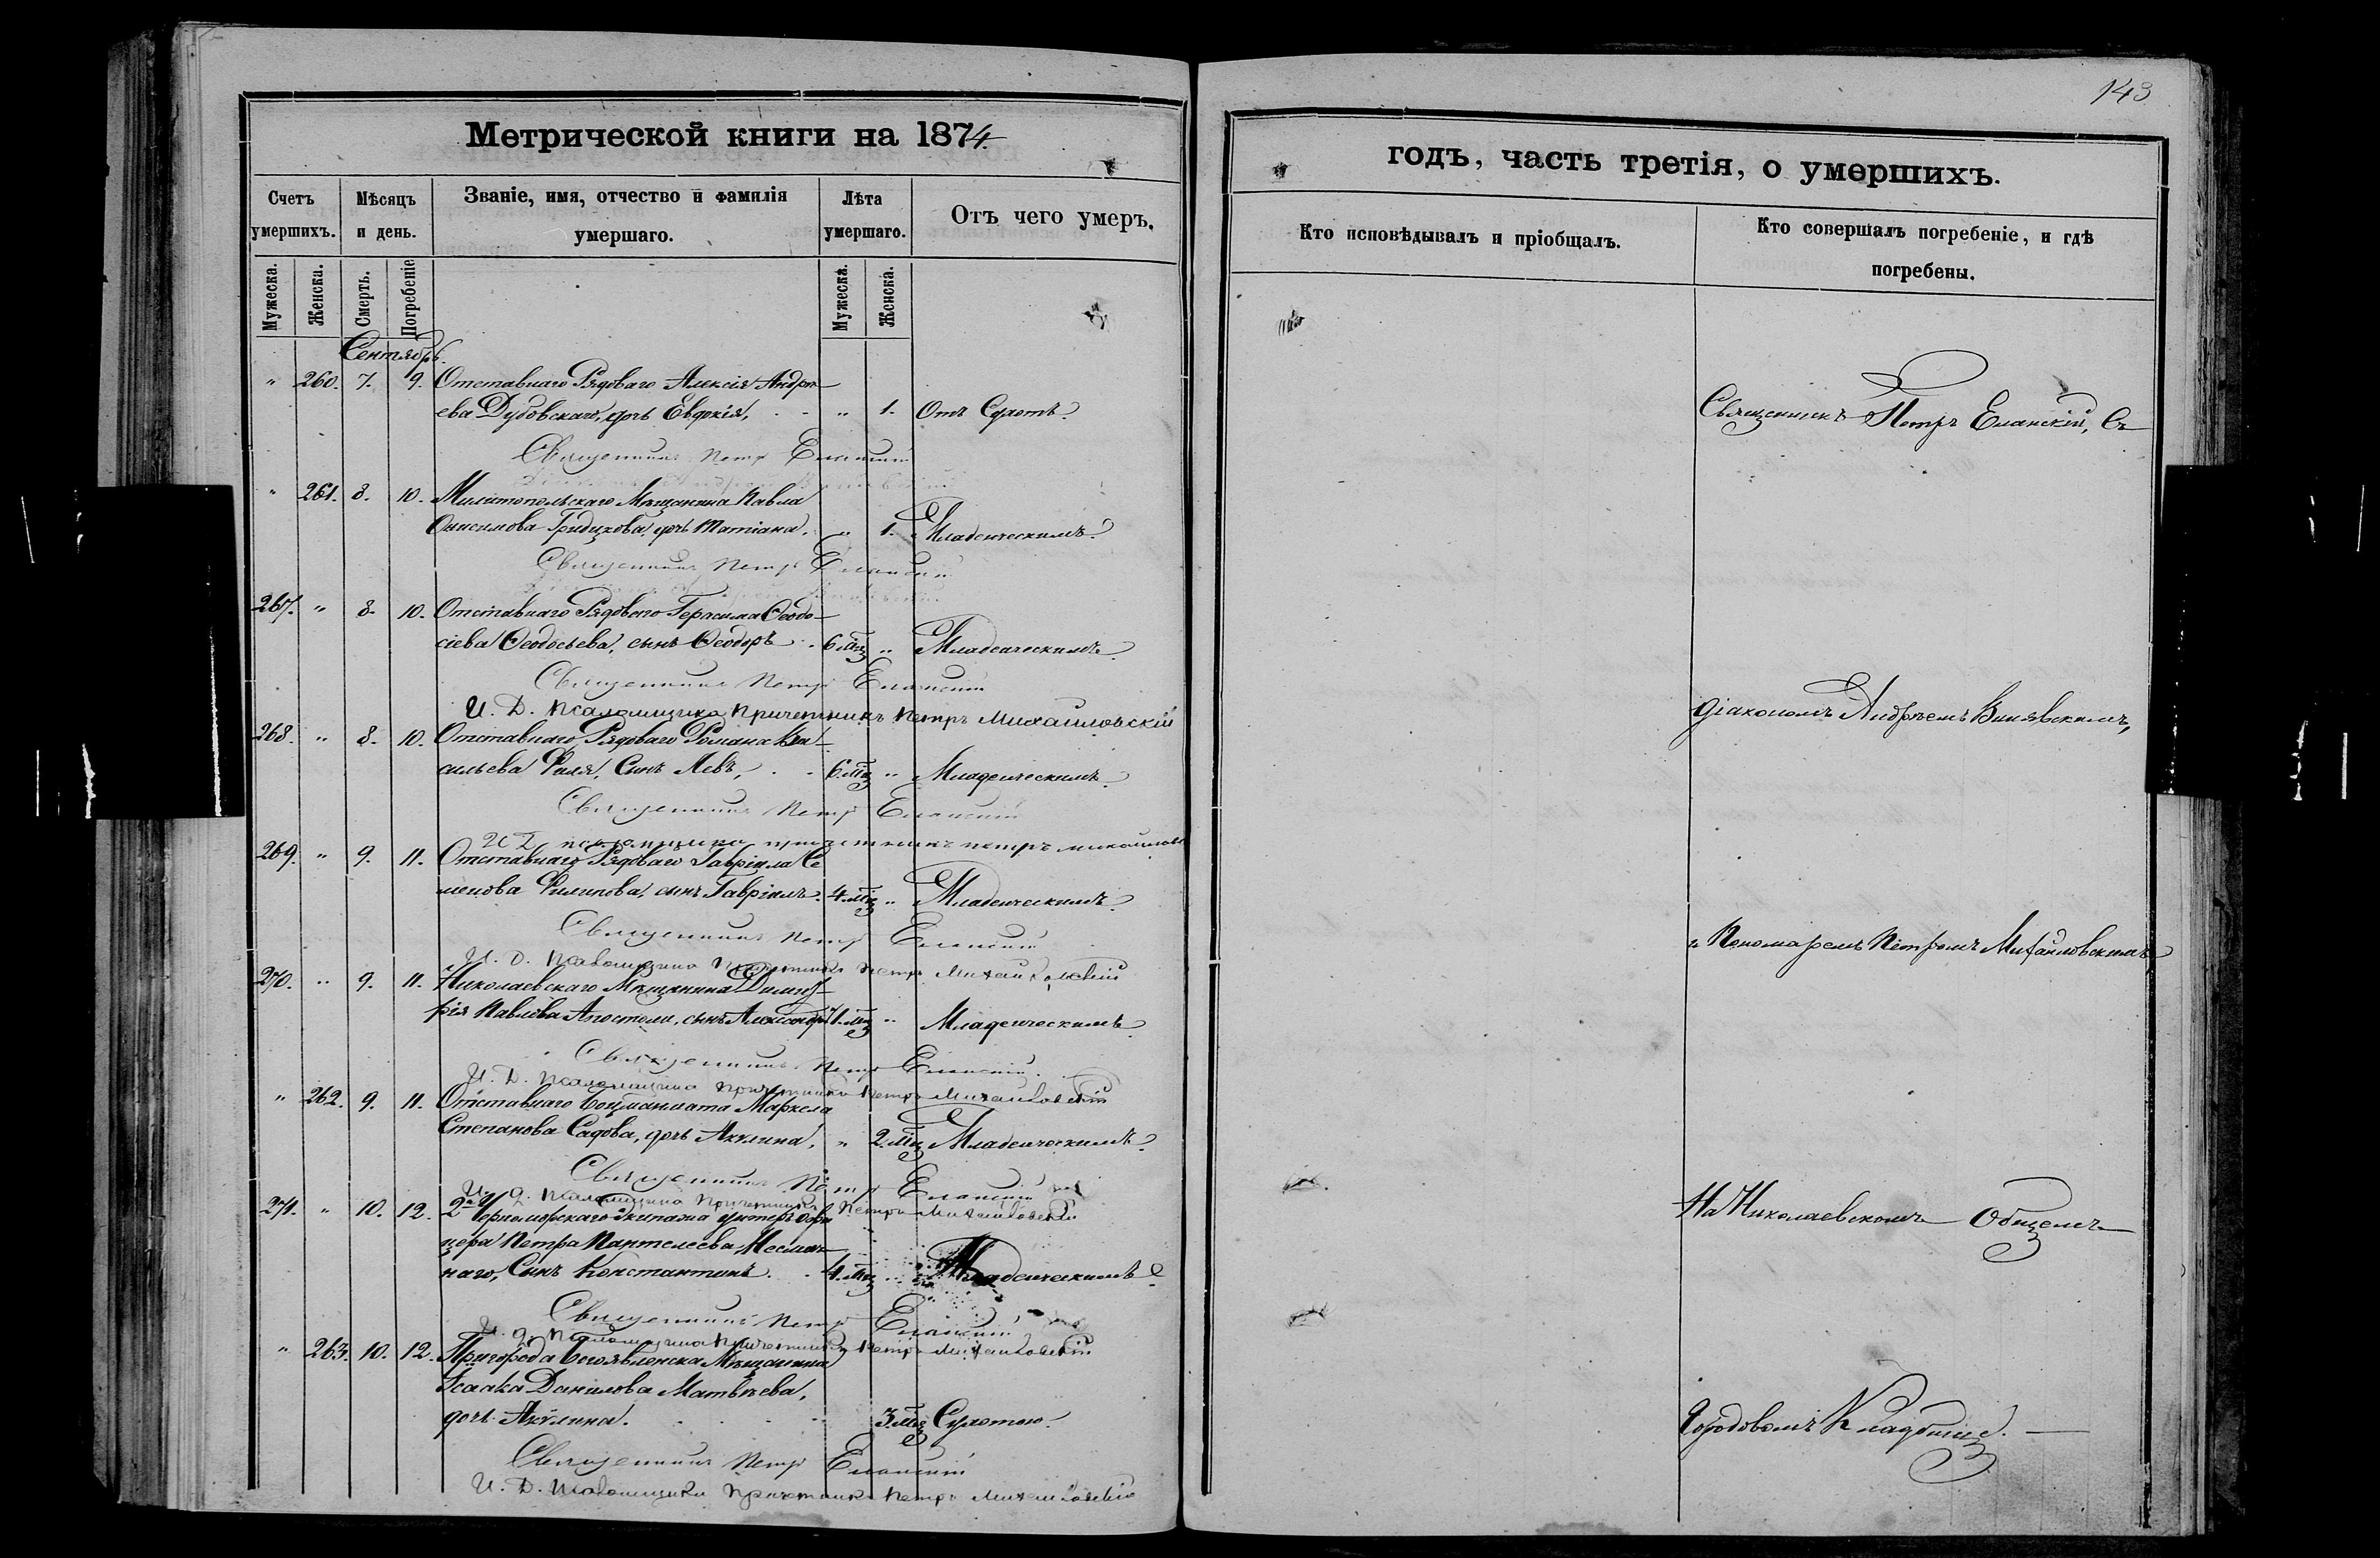 143
Метрической книги на 1874
годъ, часть третія, о умершихъ.
Счетъ умершихъ.
Мѣсяцъ и день.
Званіе, имя, отчество и фамилія умершаго.
Лѣта умершаго.
Отъ чего умеръ.
Кто исповѣдывалъ и пріобщалъ.
Кто совершалъ погребеніе, и гдѣ погребены.
Мужеска. Женска. Смерть. Погребеніе Мужеска. Женска.
Сентябрь.
" 260. 7. 9. Отставнаго Рядоваго Алексія Андре-
ева Дубовскаго, дочь Евдокія, " 1. Отъ Сухотъ.
Священникъ Петръ Еланскій
" 261. 8. 10. Милитопольскаго Мѣщанина Павла
Онисимова дочь Татіана. " 1. Младенческимъ.
Священникъ Петръ Еланскій
267. " 8. 10. Отставнаго Рядоваго Герасима Ѳеодо-
сіева Ѳеодосьева, сынъ Ѳеодоръ 6 мѣц " Младенческимъ.
Священникъ Петръ Еланскій
И. Д. Псаломщика Причетникъ Петръ Михайловскій
268. " 8. 10. Отставнаго Рядоваго Романа Ва-
сильева Сынъ Левъ, 6 мѣц " Младенческимъ.
Священникъ Петръ Еланскій
И Д псаломщика причетникъ петръ михайлов
269. " 9. 11. Отставнаго Рядоваго Гавріила Се
менова Филипова, сынъ Гавріилъ. 4 мѣц " Младенческимъ.
Священникъ Петръ Еланскій
И. Д. Псаломщика Причетникъ Петръ Михайловскій
270. " 9. 11. Николаевскаго Мѣщанина Димит-
рія Павлова Апостоли, сынъ Александръ 1 мѣц " Младенческимъ
Священникъ Петръ Еланскій.
И. Д. Псаломщика Причетникъ Петръ Михайловскій
" 262. 9. 11. Отставнаго Боцманмата Маркела
Степанова Садова, дочь Акулина, " 2 мѣц Младенческимъ.
Священникъ Петръ Еланскій
И. Д. Псаломщика Причетникъ Петръ Михайловскій
271. " 10. 12. 2го Черноморскаго Экипажа унтеръ офи
цера Петра Пантелеева
наго, Сынъ Константинъ. 4 мѣц " Младенческимъ
Священникъ Петръ Еланскій
И. Д. Псаломщика Причетникъ Петръ Михайловскій
" 263. 10. 12. Пригорода Богоявленска Мѣщанина
Исаака Данилова Матвѣева,
дочь Акулина. 3 мѣц Сухотою.
Священникъ Петръ Еланскій
И. Д. Псаломщика Причетникъ Петръ Михайловскій
Священникъ Петръ Еланскій, Съ
діакономъ Андреемъ
и Пономаремъ Петромъ Михайловскимъ
На Николаевскомъ Общемъ
Городовомъ Кладбище.